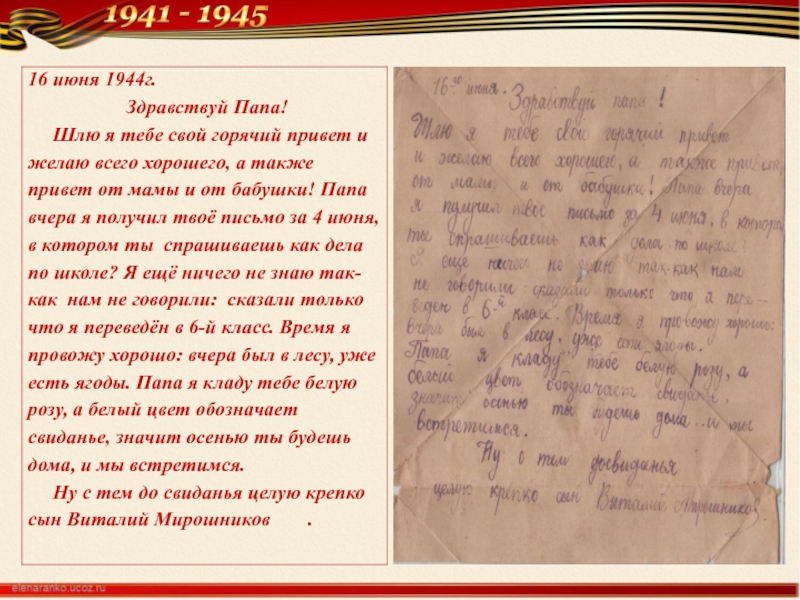 1941 - 1945
16 июня 1944г.
Здравствуй Папа!
Шлю я тебе свой горячий привет и
желаю всего хорошего, а также
привет от мамы и от бабушки! Папа
вчера я получил твоё письмо за 4 июня,
в котором ты спрашиваешь как дела
по школе? Я ещё ничего не знаю так-
как нам не говорили: сказали только
что я переведён в 6-й класс. Время я
провожу хорошо: вчера был в лесу, уже
есть ягоды. Папа я кладу тебе белую
розу, а белый цвет обозначает
свиданье, значит осенью ты будешь
дома, и мы встретимся.
Ну с тем до свиданья целую крепко
сын Виталий Мирошников .
16го июня. Здравствуй папа!
Шлю я тебе свой горячий привет
и желаю всего хорошего, а также привет
от мамы и от бабушки! Папа вчера
я получил твое письмо за 4 июня, в котором
ты спрашиваешь как дела по школе?
Я еще ничего не знаю так-как нам
не говорили: сказали только что я пере-
веден в 6-й класс. Время я провожу хорошо:
вчера был в лесу, уже есть ягоды.
Папа я кладу тебе белую розу, а
белый цвет обозначает свиданье,
значит осенью ты будешь дома и мы
встретимся.
Ну с тем досвиданья
целую крепко сын Виталий Мирошников.
elenaranko.ucoz.ru